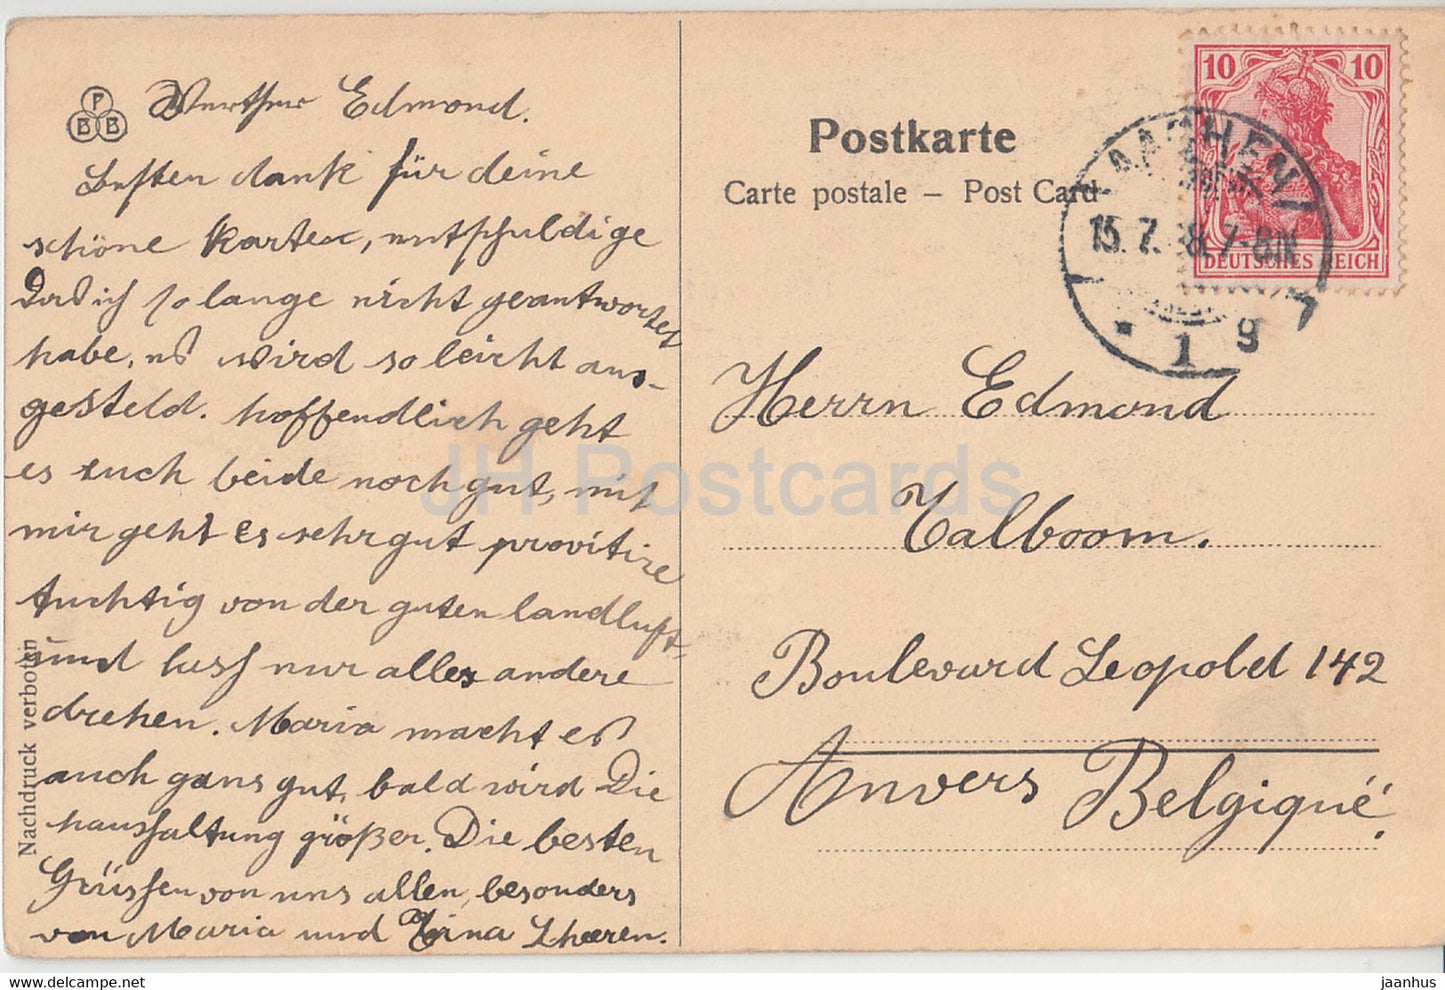 P
B B
Werther Edmond.
Besten dank für deine
schöne Karten, entschuldige
Das ich so lange nicht geantwortet
habe, es wird so leicht aus-
gesteld. hoffendlich geht
es euch beide noch gut, mit
mir geht es sehr gut
tuchtig von der guten landluft
und lass nur alles andere
drehen. Maria macht es
auch gans gut, bald wird Die
haushaltung größer. Die besten
Grüssen von uns allen, besonders
von Maria und Tina
Nachdruck verboten
Postkarte
Carte postale – Post Card
10 10
DEUTSCHES REICH
AACHEN
15.7. 8. 7-8N
* 1 g
Herrn Edmond
Talboom.
Boulevard Leopold 142
Anvers Belgiqué.
JH Postcards
https://jhpostcards.com
jaanhus